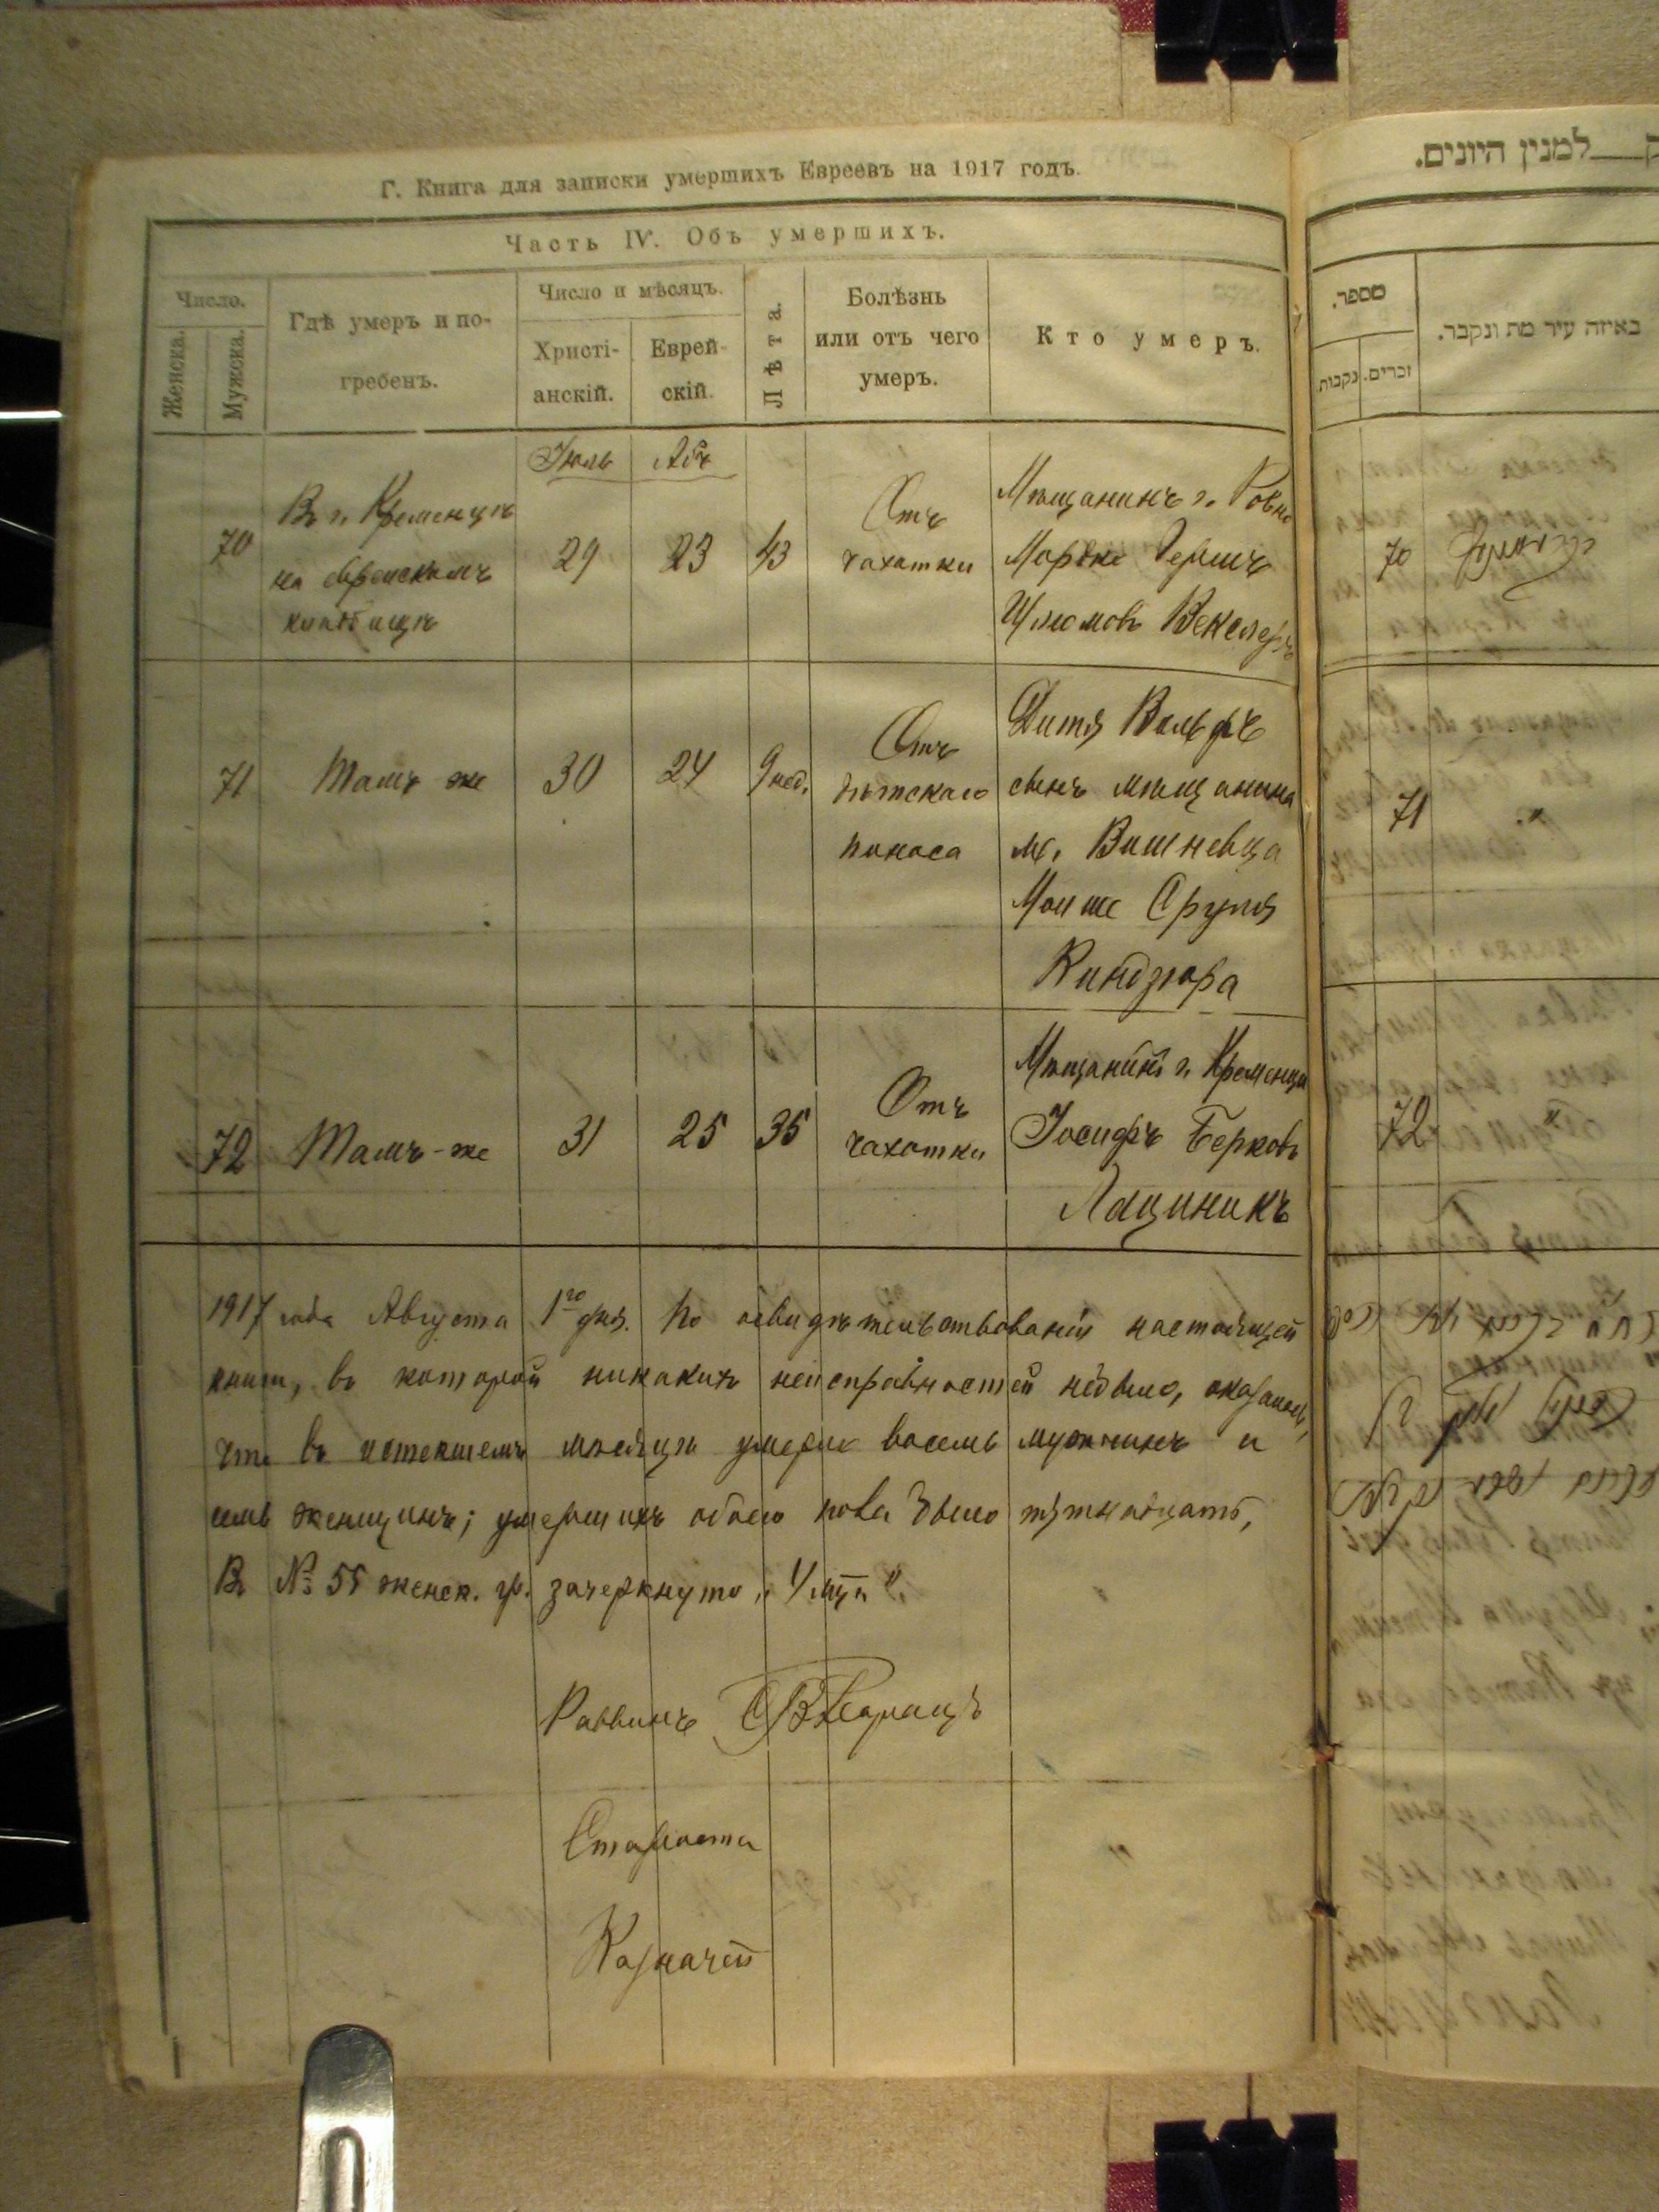 Г. Книга для записки умершихъ Евреевъ на 1917 годъ.
Часть IV. Объ умершихъ.
Число.
Женска.
Мужска.
Гдѣ умеръ и по-
гребенъ.
Число и мѣсяцъ.
Христі-
анскій.
Еврей-
скій.
Лѣта.
Болѣзнь
или отъ чего
умеръ.
Кто умеръ.
Іюль
Абъ
70
Въ г. Кременцѣ
на еврейскомъ
кладбищѣ
29
23
43
Отъ
чахотки
Мѣщанинъ г. Ровно
Мордко Гершъ
Шлюмовъ Векслеръ
71
Тамъ же
30
24
9 нед.
Отъ
дѣтскаго
поноса
Дитя Вольфъ
сынъ мѣщанина
м. Вишневца
Мойше Сруля
Киндзюра
72
Тамъ-же
31
25
35
Отъ
чахотки
Мѣщанинъ г. Кременца
Іосифъ Берковъ
Лациникъ
1917 года Августа 1го дня. По освидѣтельствованіи настоящей
книги, въ которой никакихъ неисправностей небыло, оказалось,
что въ истекшемъ мѣсяцѣ умерло восемь мужчинъ и
семь женщинъ; умершихъ обоего пола было пятнадцать,
В № 55 женск. гр. зачеркнуто
Раввинъ
Староста
Казначей
למנין היונים.
מספר.
נקבות
זכרים.
באיזה עיר מת ונקבר.
70
71
"
72
"